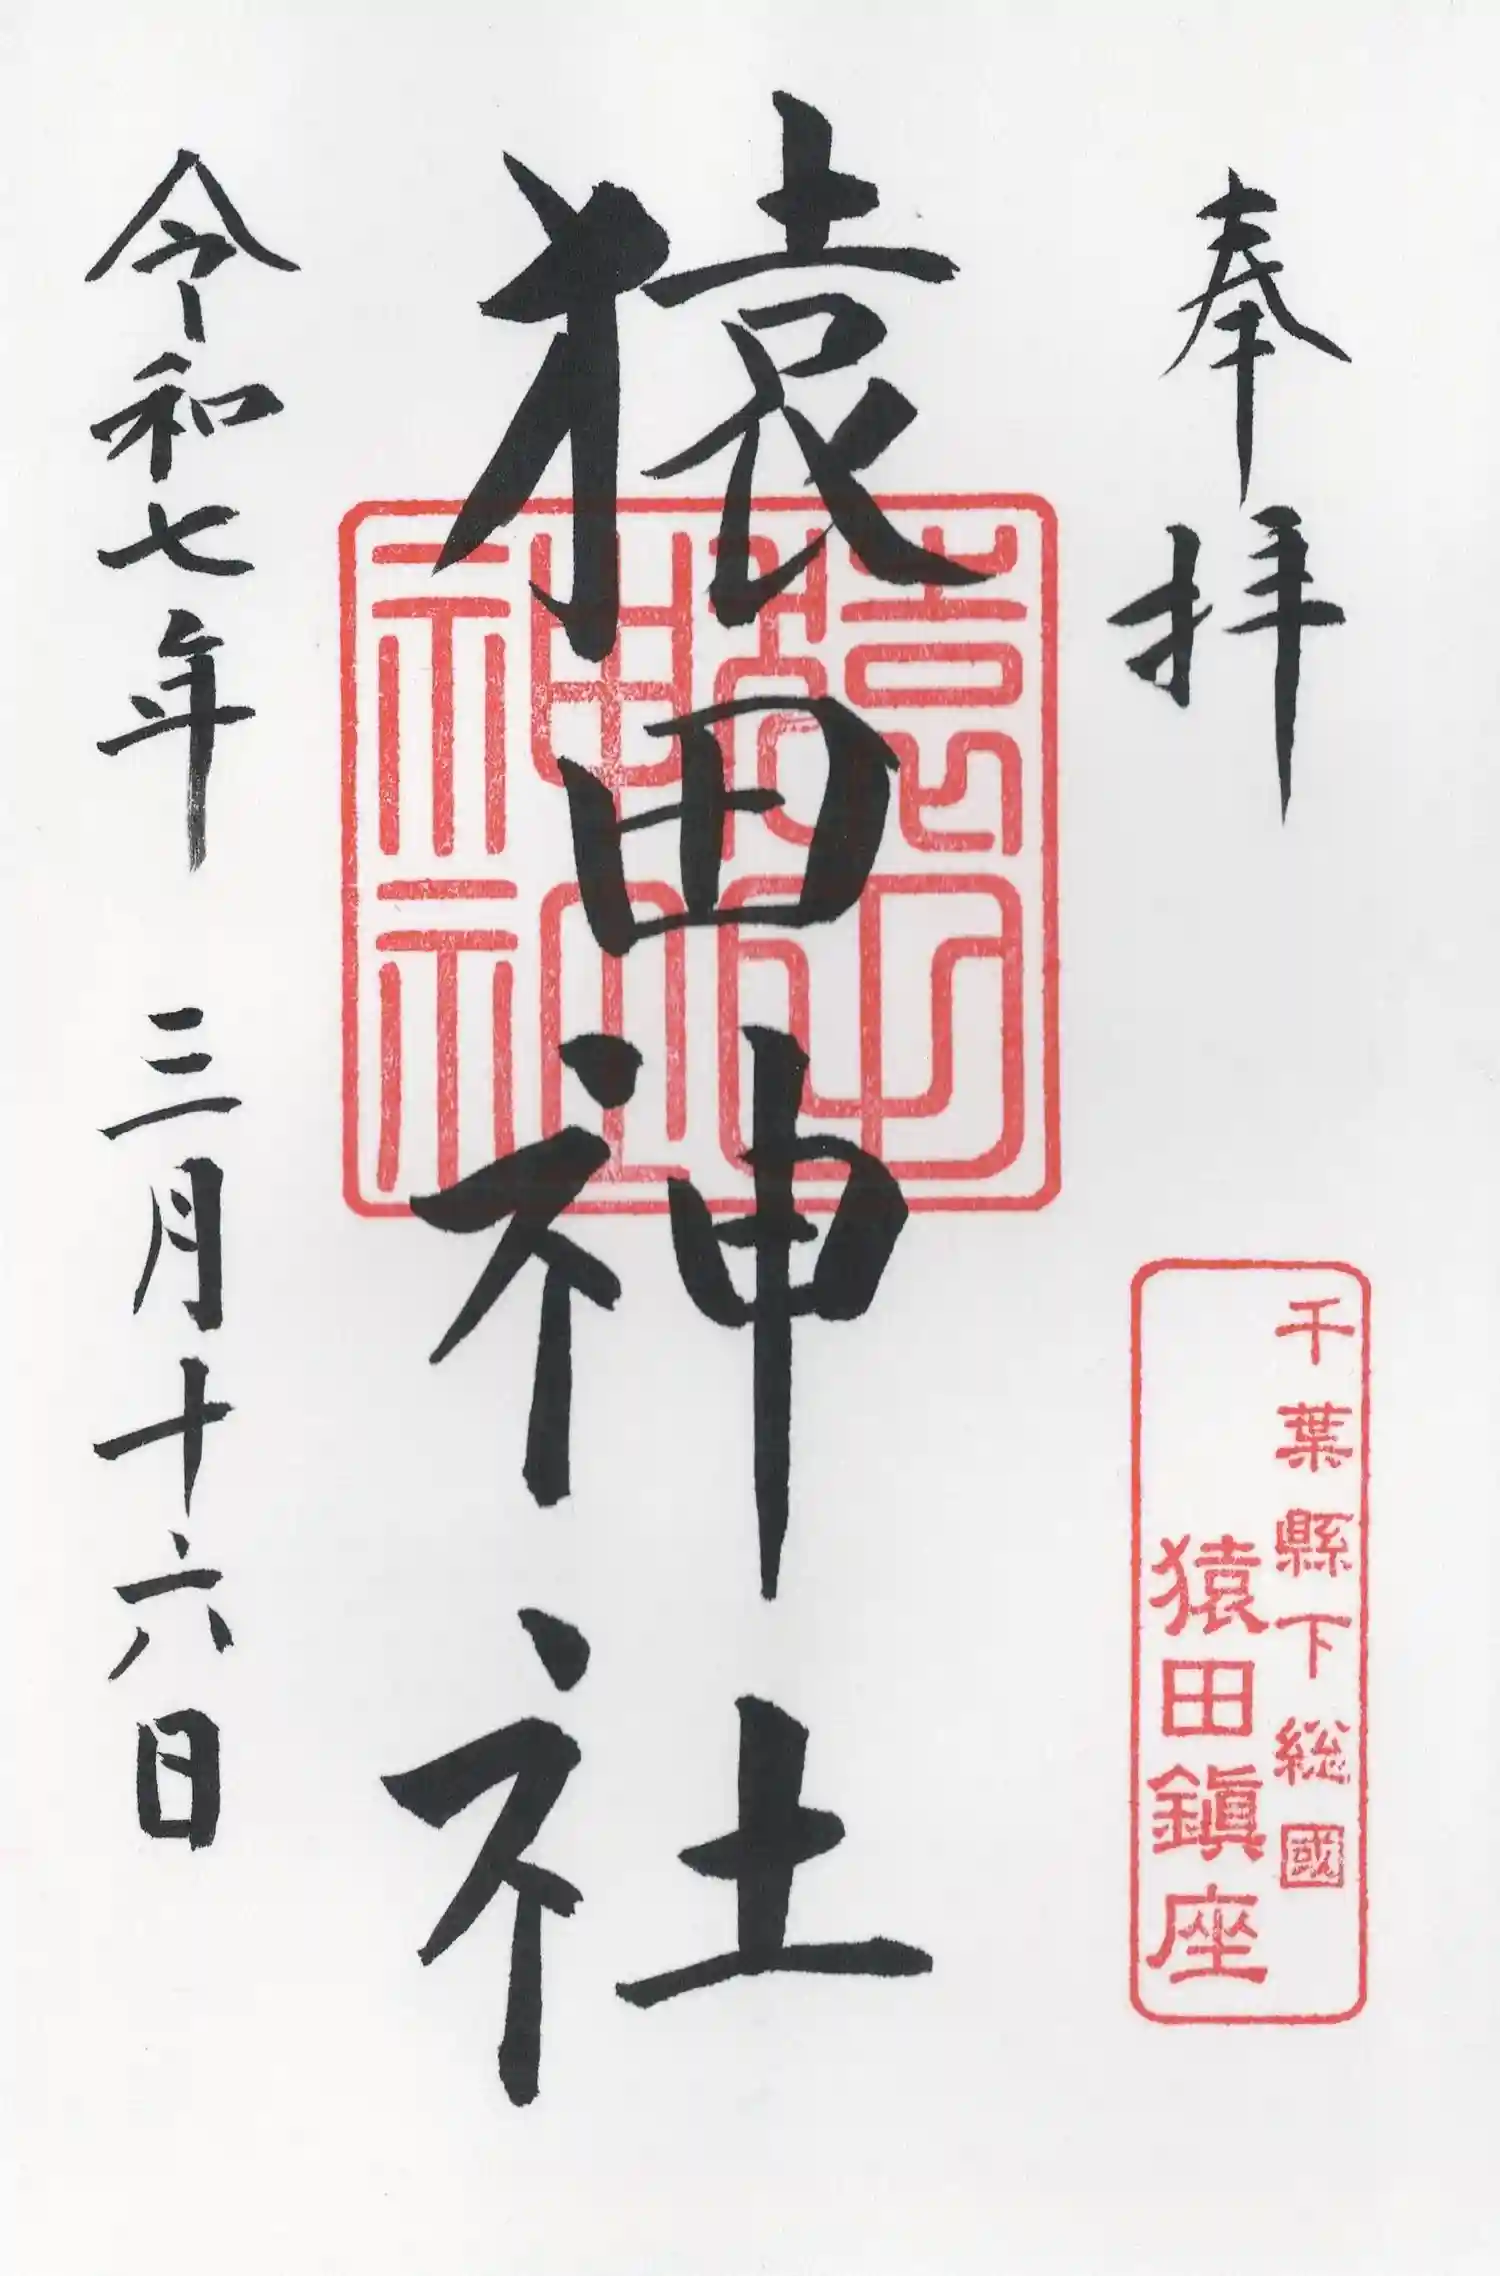 奉拝
千葉縣下総國
猿田鎭座
猿田神社
猿田
神社
令和七年 三月十六日